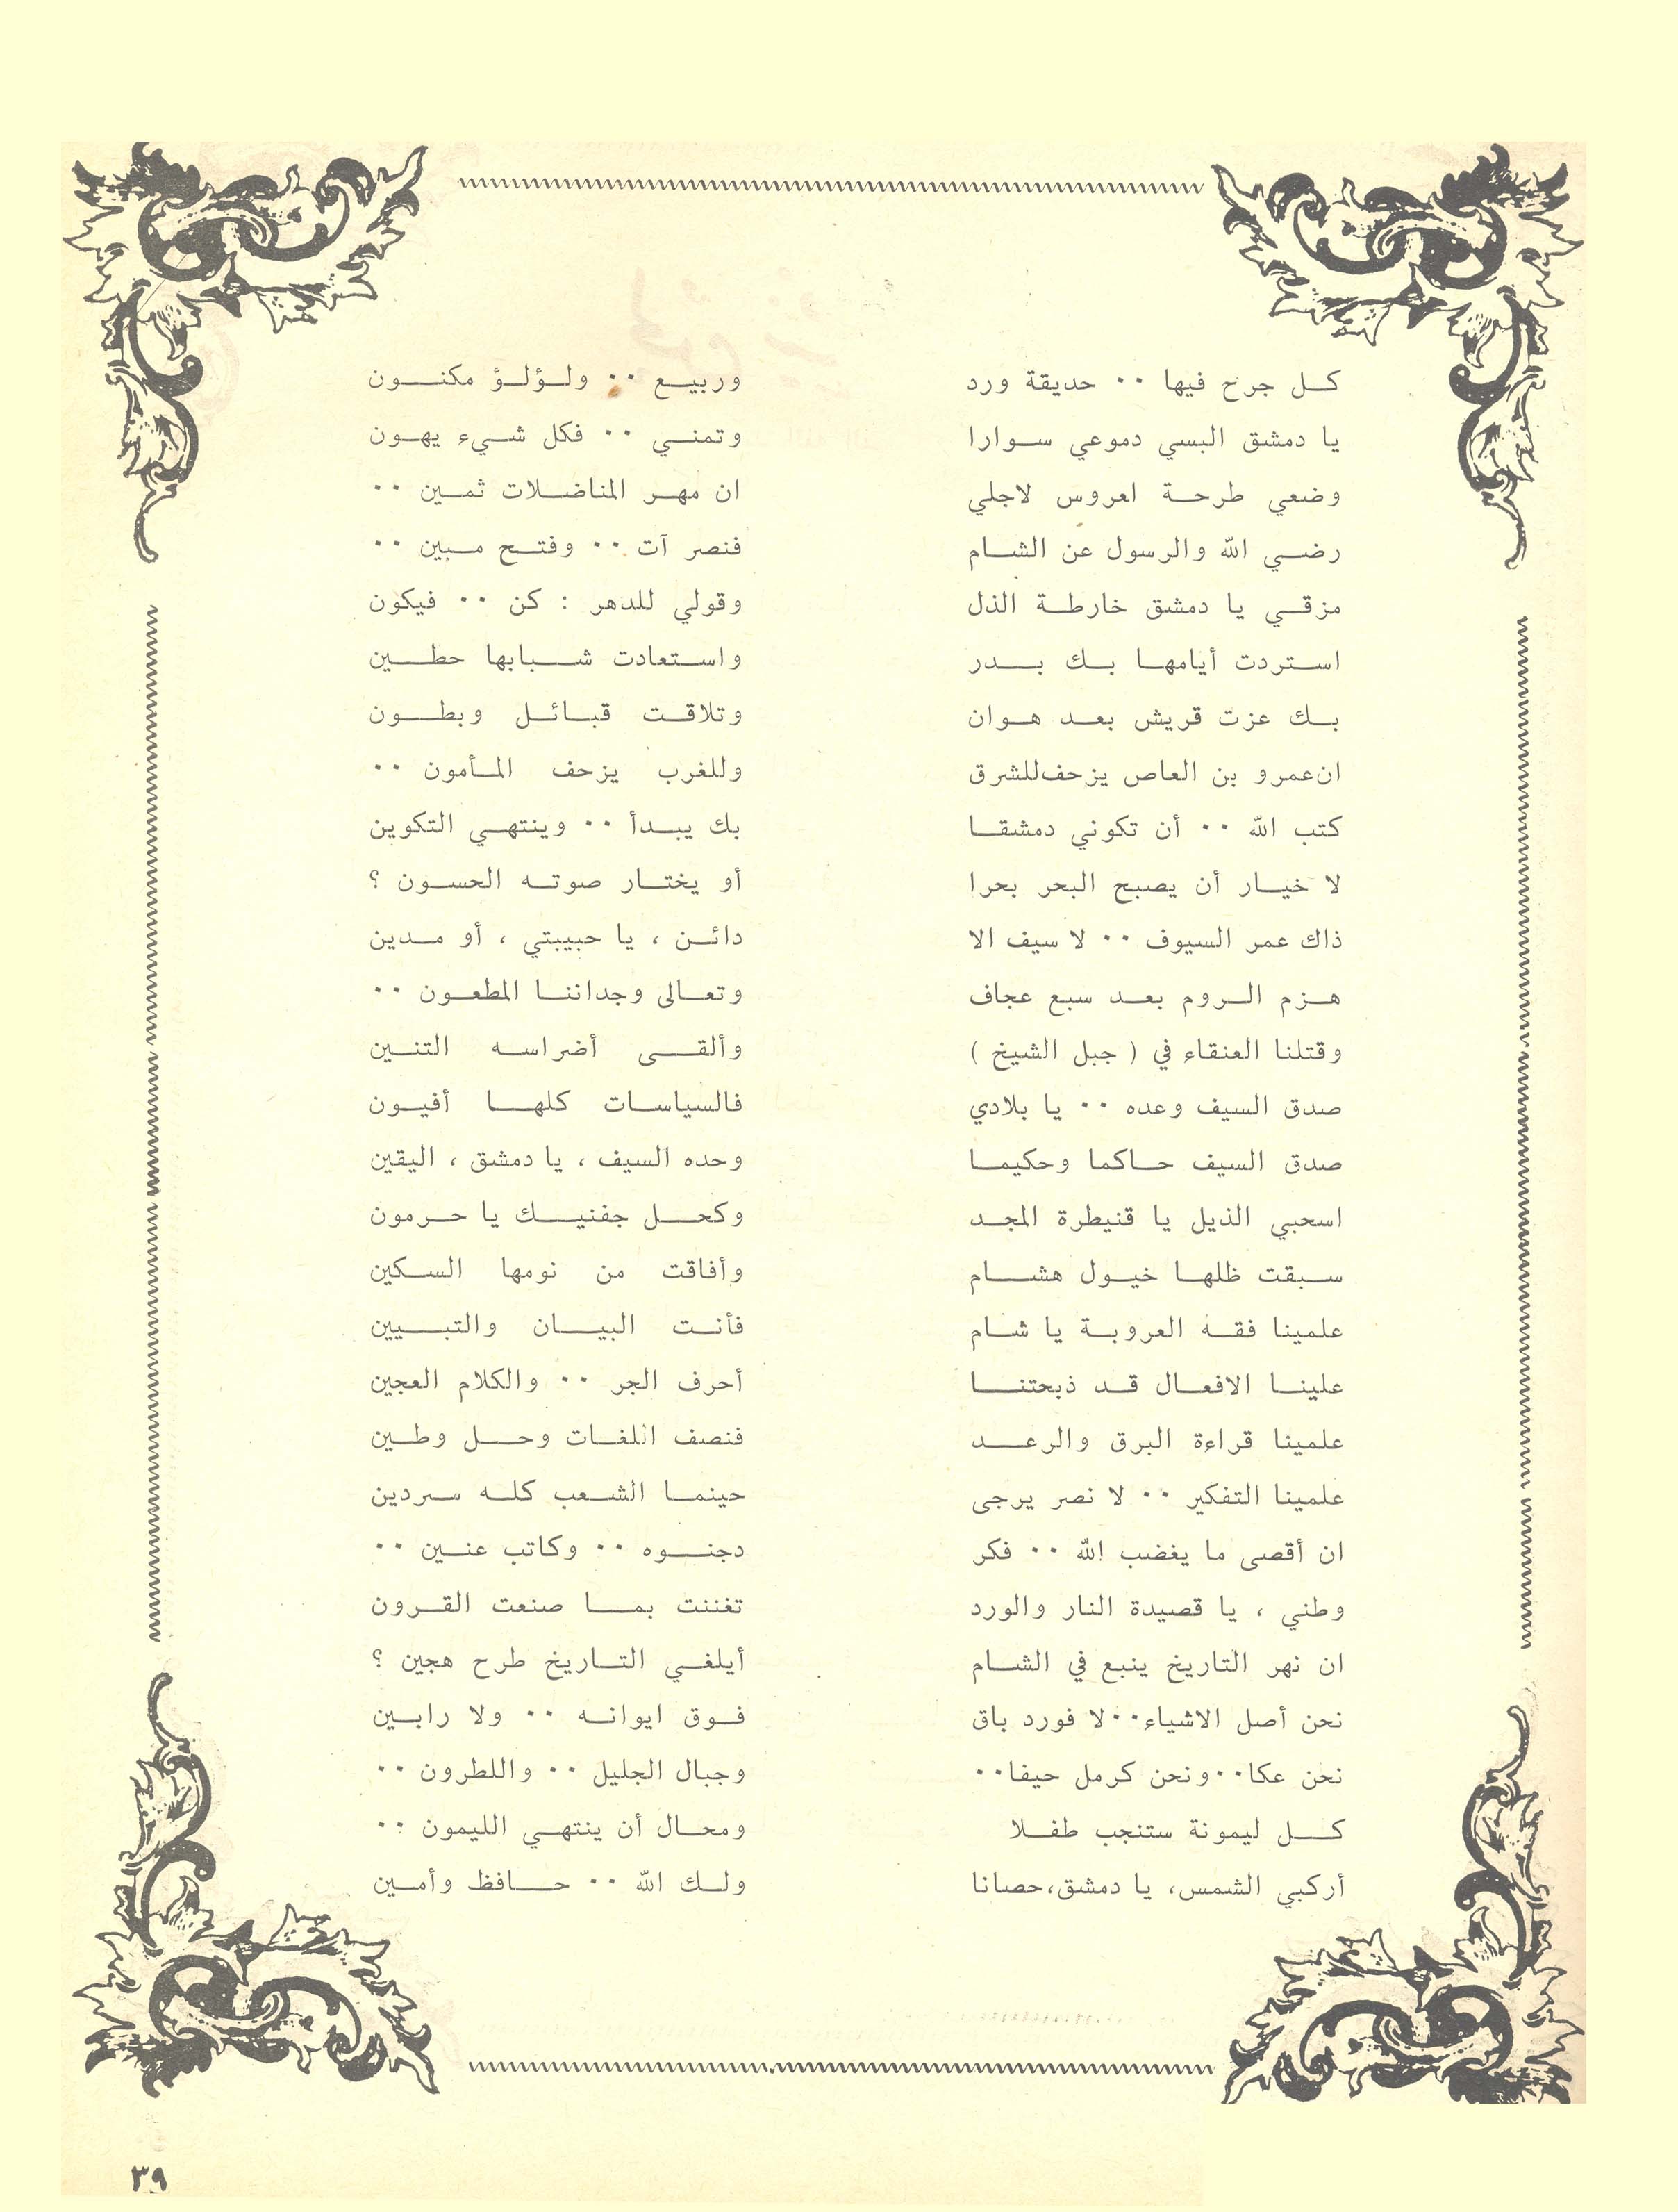 كل جرح فيها ٠٠ حديقة ورد وربيع ٠٠ ولؤلؤ مكنون
يا دمشق البسي دموعي سوارا وتمني ٠٠ فكل شيء يهون
وضعي طرحة العروس لاجلي ان مهر المناضلات ثمين ٠٠
رضي الله والرسول عن الشام فنصر آت ٠٠ وفتح مبين ٠٠
مزقي يا دمشق خارطة الذل وقولي للدهر : كن ٠٠ فيكون
استردت أيامها بك بدر واستعادت شبابها حطين
بك عزت قريش بعد هوان وتلاقت قبائل وبطون
ان عمرو بن العاص يزحف للشرق وللغرب يزحف المأمون ٠٠
كتب الله ٠٠ أن تكوني دمشقا بك يبدأ ٠٠ وينتهي التكوين
لا خيار أن يصبح البحر بحرا أو يختار صوته الحسون ؟
ذاك عمر السيوف ٠٠ لا سيف الا دائن ، يا حبيبتي ، أو مدين
هزم الروم بعد سبع عجاف وتعالى وجداننا المطعون ٠٠
وقتلنا العنقاء في ( جبل الشيخ ) وألقى أضراسه التنين
صدق السيف وعده ٠٠ يا بلادي فالسياسات كلها أفيون
صدق السيف حاكما وحكيما وحده السيف ، يا دمشق ، اليقين
اسحبي الذيل يا قنيطرة المجد وكحل جفنيك يا حرمون
سبقت ظلها خيول هشام وأفاقت من نومها السكين
علمينا فقه العروبة يا شام فأنت البيان والتبيين
علينا الافعال قد ذبحتنا أحرف الجر ٠٠ والكلام العجين
علمينا قراءة البرق والرعد فنصف اللغات وحل وطين
علمينا التفكير ٠٠ لا نصر يرجى حينما الشعب كله سردين
ان أقصى ما يغضب الله ٠٠ فكر دجنوه ٠٠ وكاتب عنين ٠٠
وطني ، يا قصيدة النار والورد تغننت بما صنعت القرون
ان نهر التاريخ ينبع في الشام أيلغي التاريخ طرح هجين ؟
نحن أصل الاشياء٠٠لا فورد باق فوق ايوانه ٠٠ ولا رابين
نحن عكا٠٠ونحن كرمل حيفا٠٠ وجبال الجليل ٠٠ واللطرون ٠٠
كل ليمونة ستنجب طفلا ومحال أن ينتهي الليمون ٠٠
أركبي الشمس، يا دمشق،حصانا ولك الله ٠٠ حافظ وأمين
٣٩